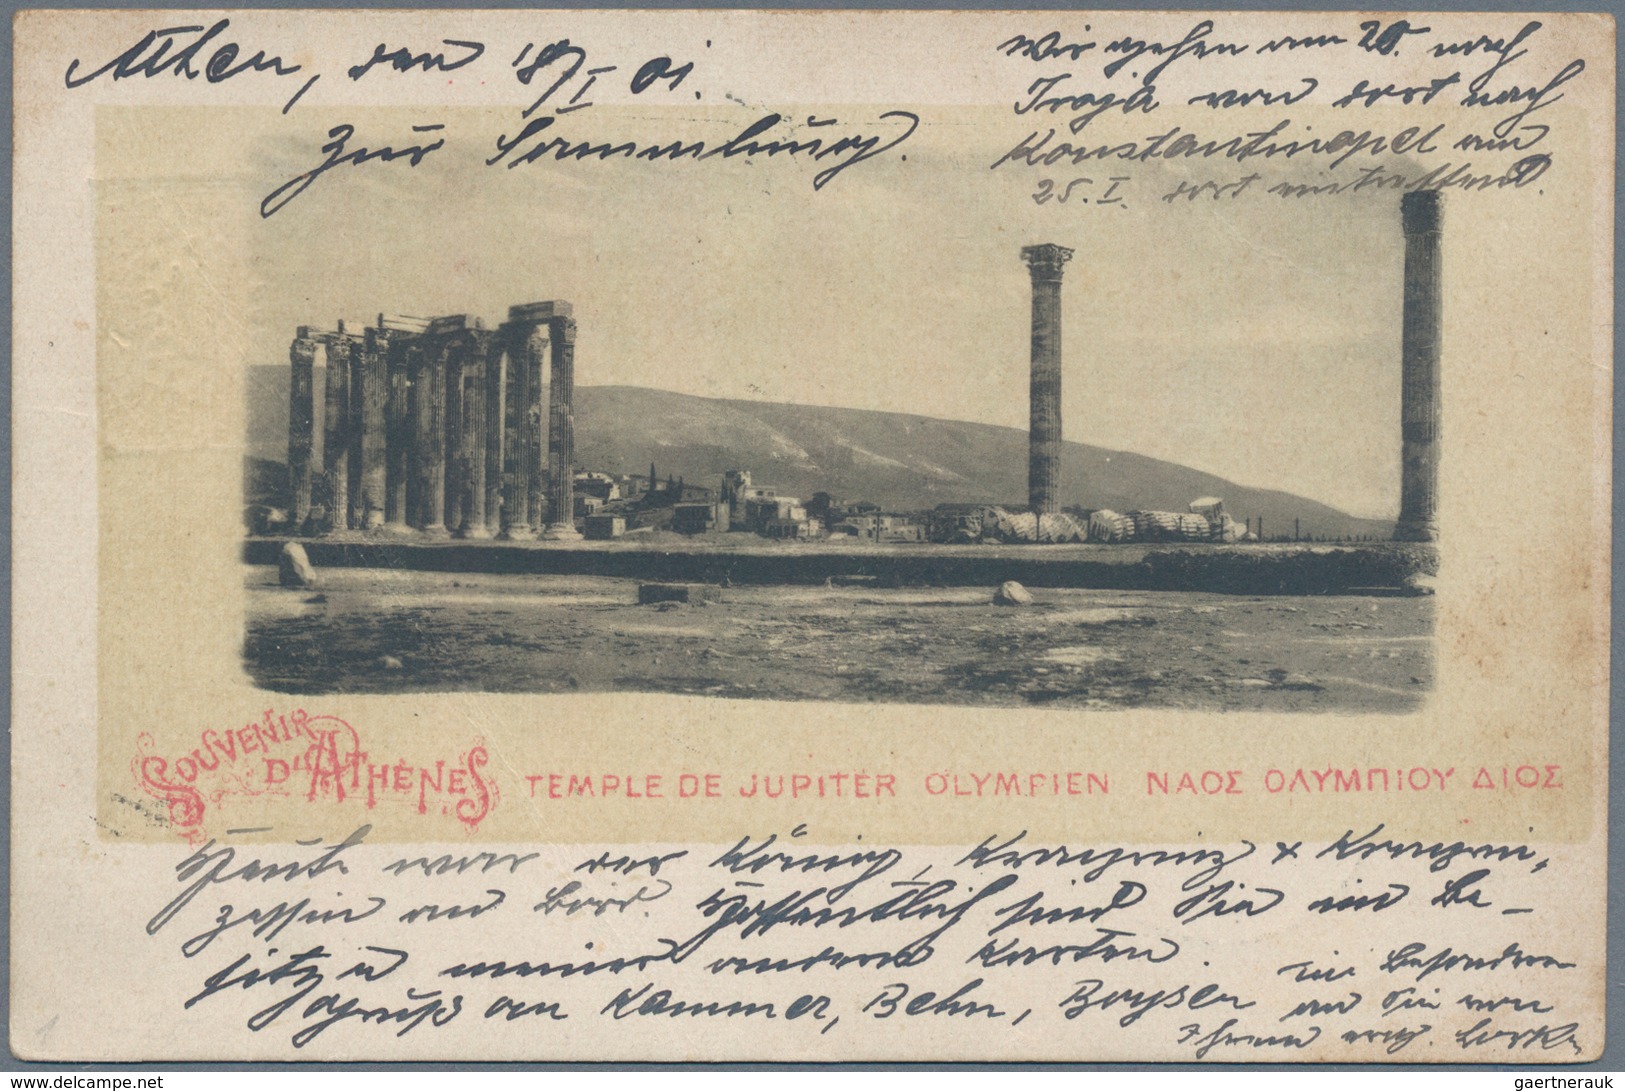 Athen, den 18/I 01.
Zur Sammlung.
Wir gehen am 20. nach
Troja von dort nach
Konstantinopel am
25. I. dort eintreffend.
SOUVENIR
D'ATHÈNES
TEMPLE DE JUPITER OLYMPIEN ΝΑΟΣ ΟΛΥΜΠΙΟΥ ΔΙΟΣ
Heute war der König, Kronprinz & Kronprin-
zessin an Bord. Hoffentlich sind Sie im Be-
sitze meiner anderen Karten.
Gruß an Kammer, Behn, Boysen
im Besonderen
an Sie von
Ihrem
1
gaertnerauk